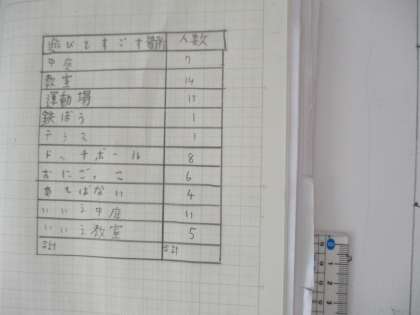 遊びをすごす場所 人数
中庭 7
教室 14
運動場 15
鉄ぼう 1
ドッチボール 8
おにごっこ 6
あそばない 4
いいう中庭 11
いいう教室 5
計 計